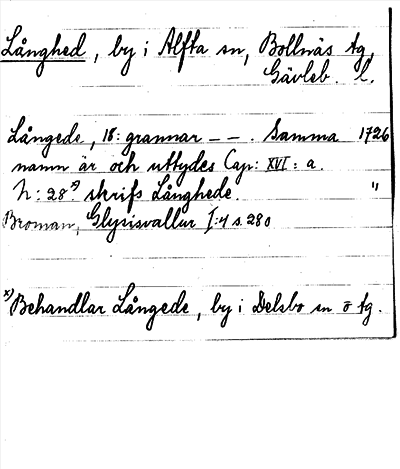 Långhed, by i Alfta sn, Bollnäs tg,
Gävleb. l.
Långede, 18: grannar – – . Samma 1726
namn är och uttydes Cap: XVI: a.
n: 28 x) skrifs Långhede. "
Broman, Glysisvallur I:4 s. 280
x) Behandlar Långede, by i Delsbo sn o tg.